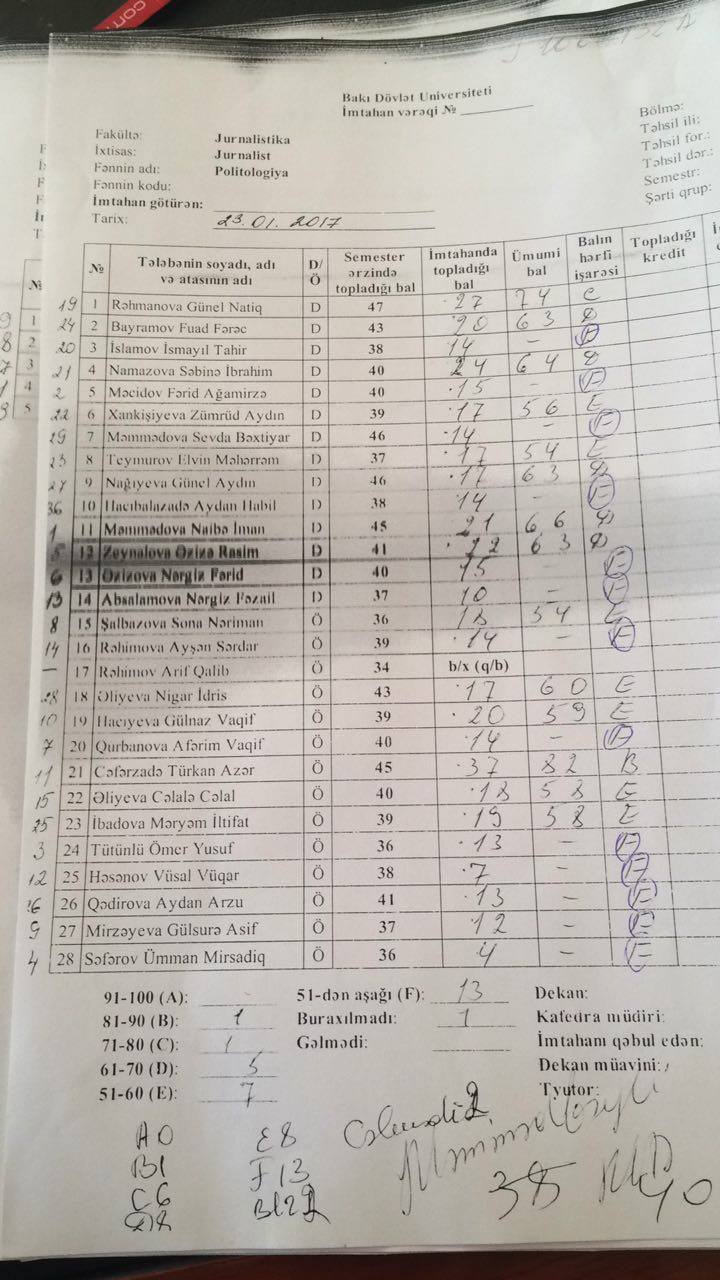 Bakı Dövlət Universiteti
İmtahan vərəqi №
Fakültə: Jurnalistika
İxtisas: Jurnalist
Fənnin adı: Politologiya
Fənnin kodu:
İmtahan götürən:
Tarix: 23.01.2017
Bölmə:
Təhsil ili:
Təhsil for.:
Təhsil dər.:
Semestr:
Şərti qrup:
№ Tələbənin soyadı, adı və atasının adı D/Ö Semester ərzində topladığı bal İmtahanda topladığı bal Ümumi bal Balın hərfi işarəsi Topladığı kredit
19 1 Rəhmanova Günel Natiq D 47 27 74 C
24 2 Bayramov Fuad Fərəc D 43 20 63 D
20 3 İslamov İsmayıl Tahir D 38 14 - F
21 4 Namazova Səbinə İbrahim D 40 24 64 D
2 5 Məcidov Fərid Ağamirzə D 40 15 - F
22 6 Xankişiyeva Zümrüd Aydın D 39 17 56 E
29 7 Məmmədova Sevda Bəxtiyar D 46 14 - F
23 8 Teymurov Elvin Məhərrəm D 37 17 54 E
27 9 Nağıyeva Günel Aydın D 46 17 63 D
36 10 Hacıbalazadə Aydan Habil D 38 14 - F
1 11 Məmmədova Naibə İman D 45 21 66 D
5 12 Zeynalova Əzizə Rasim D 41 22 63 D
6 13 Əzizova Nərgiz Fərid D 40 15 - F
13 14 Absalamova Nərgiz Fəzail D 37 10 - F
8 15 Şalbazova Sona Nəriman Ö 36 18 54 E
14 16 Rəhimova Ayşən Sərdar Ö 39 14 - F
- 17 Rəhimov Arif Qalib Ö 34 b/x (q/b)
28 18 Əliyeva Nigar İdris Ö 43 17 60 E
10 19 Hacıyeva Gülnaz Vaqif Ö 39 20 59 E
7 20 Qurbanova Afərim Vaqif Ö 40 14 - F
11 21 Cəfərzadə Türkan Azər Ö 45 37 82 B
15 22 Əliyeva Cəlalə Cəlal Ö 40 18 58 E
25 23 İbadova Məryəm İltifat Ö 39 19 58 E
3 24 Tütünlü Ömer Yusuf Ö 36 13 - F
12 25 Həsənov Vüsal Vüqar Ö 38 7 - F
26 Qədirova Aydan Arzu Ö 41 13 - F
9 27 Mirzəyeva Gülsurə Asif Ö 37 12 - F
4 28 Səfərov Ümman Mirsadiq Ö 36 4 - F
91-100 (A): - 51-dən aşağı (F): 13 Dekan:
81-90 (B): 1 Buraxılmadı: 1 Kafedra müdiri:
71-80 (C): 1 Gəlmədi: İmtahanı qəbul edən:
61-70 (D): 5 Dekan müavini:
51-60 (E): 7 Tyutor:
A0 E8
B1 F13
C6
38
40